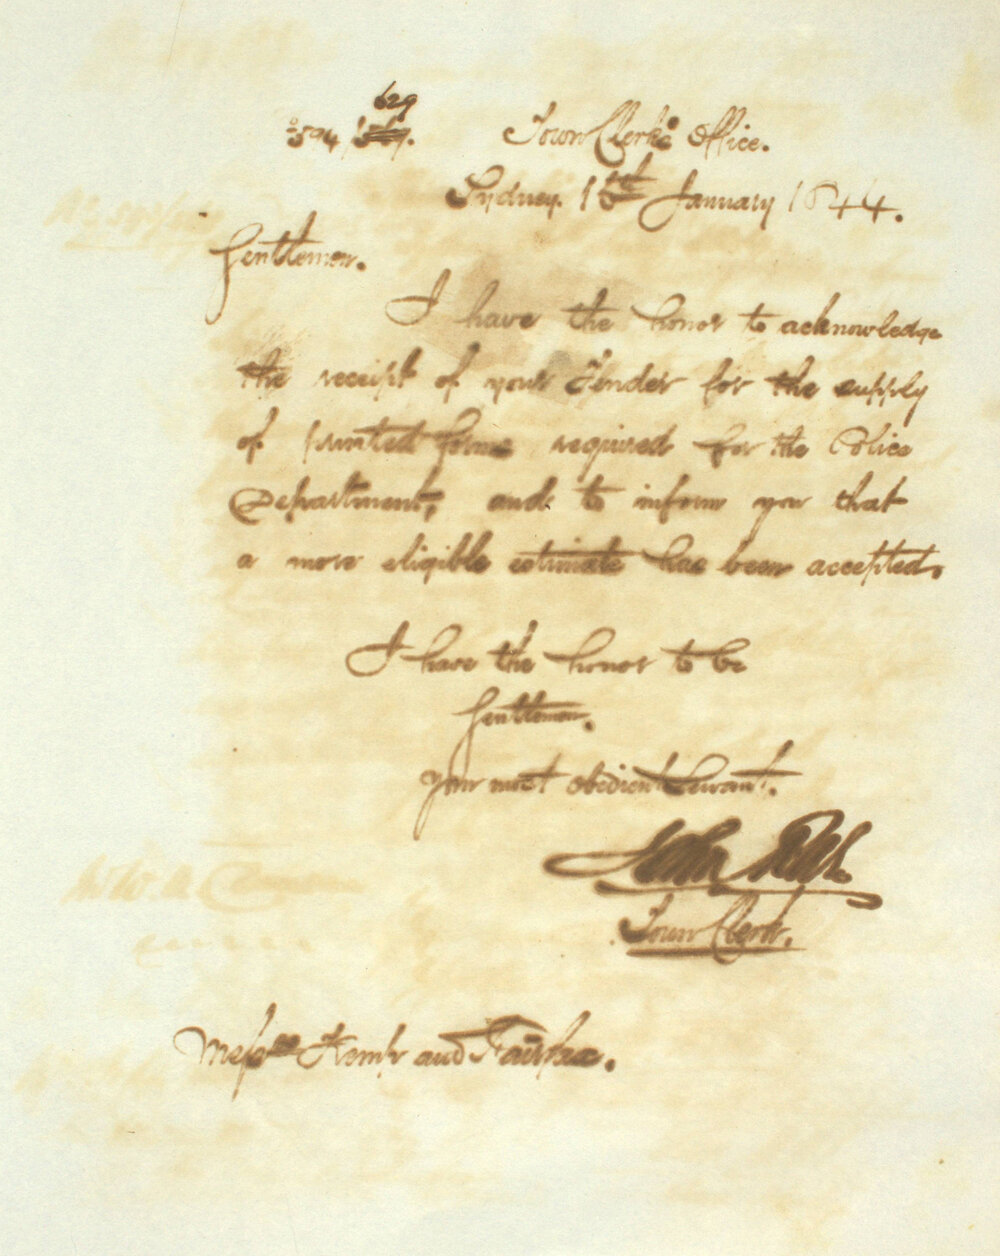 629
Town Clerk's Office.
Sydney. 15th January 1844.
Gentlemen.
I have the honor to acknowledge
the receipt of your Tender for the supply
of printed forms required for the Police
Department, and to inform you that
a more eligible estimate has been accepted.
I have the honor to be
Gentlemen.
Your most obedient Servant.
John
Town Clerk.
Messrs Kemp and Fairfax.